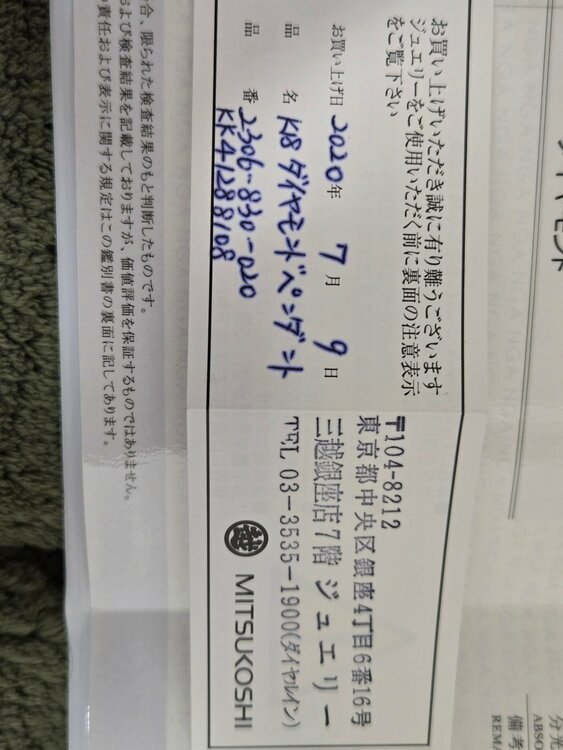 お買い上げいただき誠に有り難うございます
ジュエリーをご使用いただく前に裏面の注意表示
をご覧下さい
お買い上げ日 2020年 7月 9日
品 名 K18ダイヤモンドペンダント
品 番 2306-830-020
KK41288108
〒104-8212
東京都中央区銀座4丁目6番16号
三越銀座店7階 ジュエリー
TEL 03-3535-1900(ダイヤルイン)
越 MITSUKOSHI
合、限られた検査結果のもと判断したものです。
および検査結果を記載しておりますが、価値評価を保証するものではありません。
責任および表示に関する規定はこの鑑別書の裏面に記してあります。
イヤモンド
分光
ABSO
備考
REMA